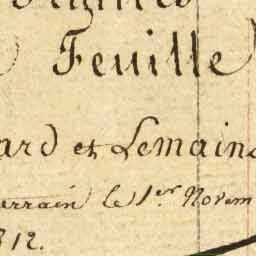 Feuille
ard et Lemain
terrain le 1er Novem
812.